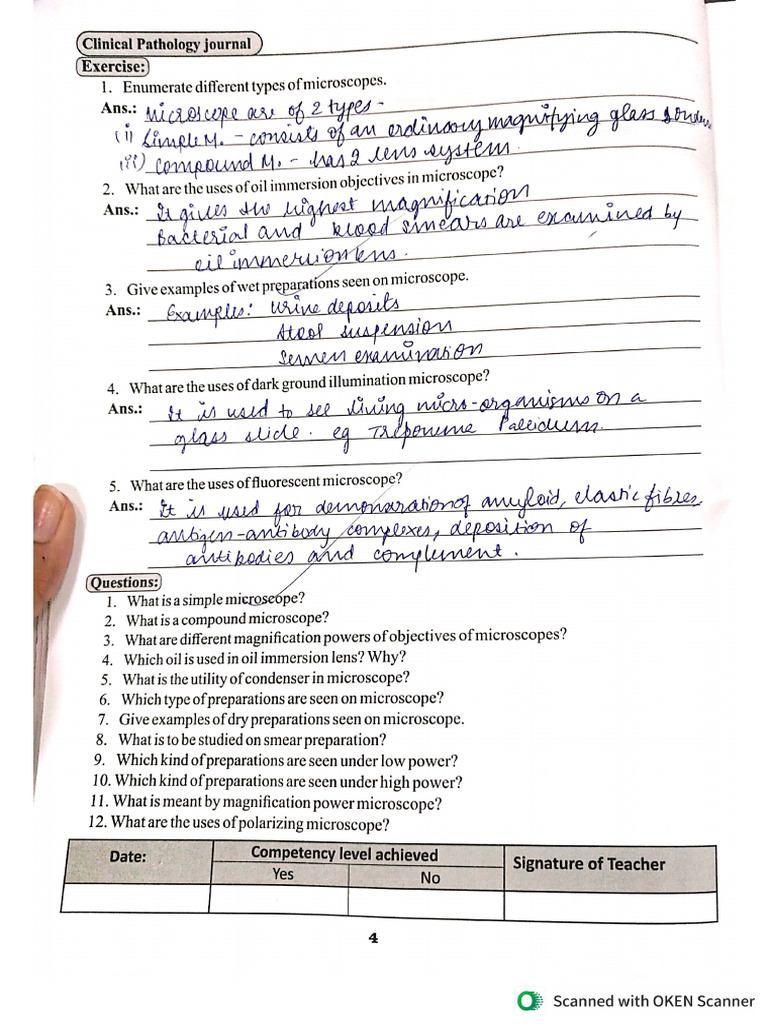 Clinical Pathology journal
Exercise:
1. Enumerate different types of microscopes.
Ans.: Microscope are of 2 types -
(i) Simple M. - consists of an ordinary magnifying glass &
(ii) Compound M. - has 2 lens system.
2. What are the uses of oil immersion objectives in microscope?
Ans.: It gives the highest magnification
Bacterial and blood smears are examined by
oil immersion lens.
3. Give examples of wet preparations seen on microscope.
Ans.: Examples: Urine deposits
Stool suspension
Semen examination
4. What are the uses of dark ground illumination microscope?
Ans.: It is used to see living micro-organisms on a
glass slide. eg Treponema Paleidum.
5. What are the uses of fluorescent microscope?
Ans.: It is used for demonsration of amyloid, elastic fibres,
antigen-antibody complexes, deposition of
antibodies and complement.
Questions:
1. What is a simple microscope?
2. What is a compound microscope?
3. What are different magnification powers of objectives of microscopes?
4. Which oil is used in oil immersion lens? Why?
5. What is the utility of condenser in microscope?
6. Which type of preparations are seen on microscope?
7. Give examples of dry preparations seen on microscope.
8. What is to be studied on smear preparation?
9. Which kind of preparations are seen under low power?
10. Which kind of preparations are seen under high power?
11. What is meant by magnification power microscope?
12. What are the uses of polarizing microscope?
Date: Competency level achieved Signature of Teacher
Yes No
4
Scanned with OKEN Scanner